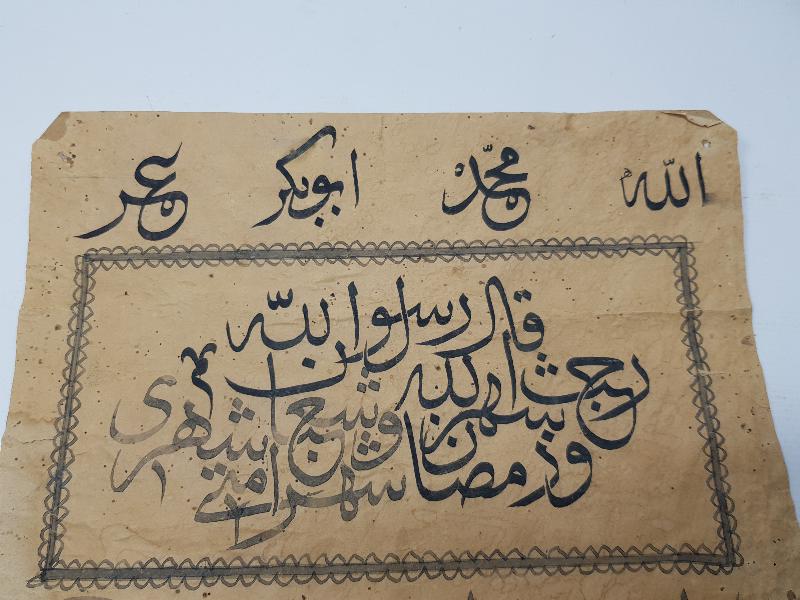 الله محمّد ابوبكر عمر
قال رسول الله
ان رجب شهر الله وشعبان شهرى
ورمضان شهر امتى